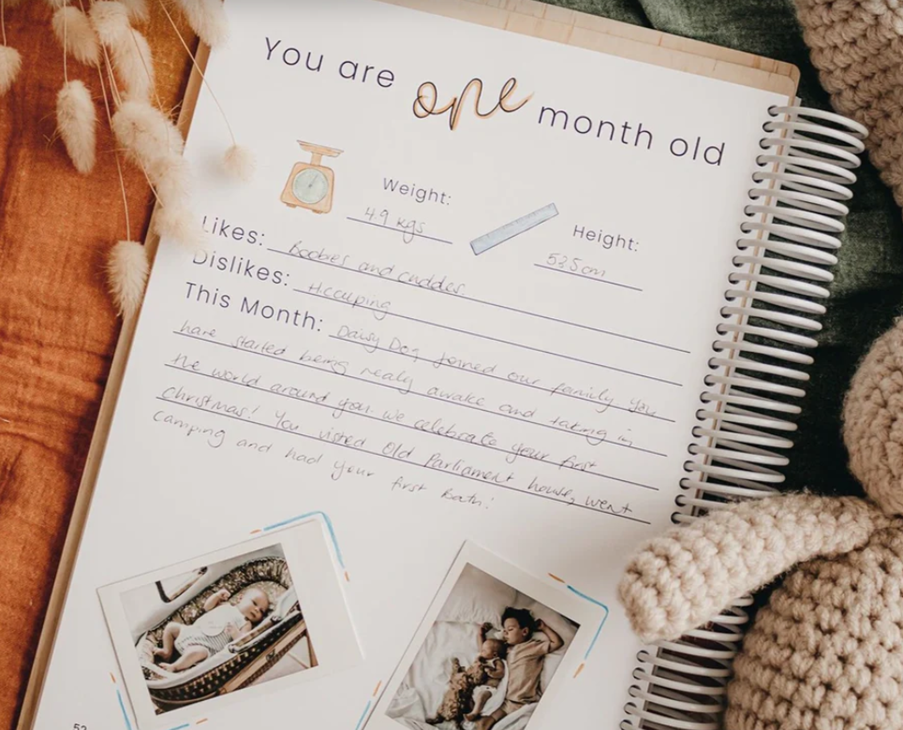 You are one month old
Weight:
4.9 kgs
Height:
53.5cm
Likes: Boobies and cuddles
Dislikes: Hiccuping
This Month: Daisy Dog joined our family You
have started being really awake and taking in
the world around you. we celebrate your first
christmas! You visited Old Parliament house, went
camping and had your first bath!
52